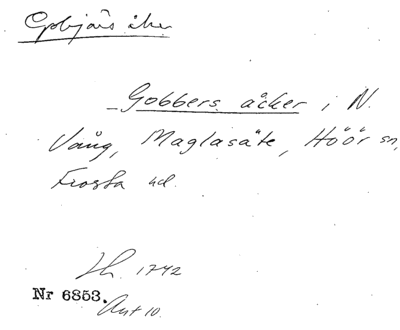 Gobjärs åker
Gobbers åcker i N.
Vång, Maglasäte, Höör sn,
Frosta hd.
Lh. 1742
Nr 6853.
Akt 10.